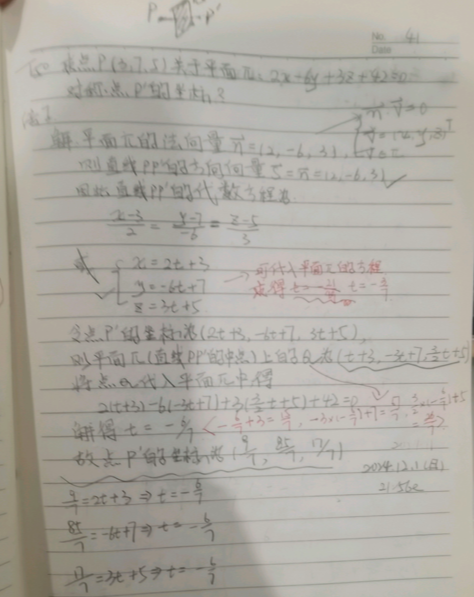 P P'
No. 41
Date
求点P(3,7,5)关于平面π: 2x-6y+3z+42=0
对称点P'的坐标?
解: 平面π的法向量n=(2,-6,3),
则直线PP'的方向向量s=n=(2,-6,3)
因此直线PP'的代数方程为
(x-3)/2 = (y-7)/-6 = (z-5)/3
或
x=2t+3
y=-6t+7
z=3t+5
→可代入平面π的方程
令点P'的坐标为(2t+3, -6t+7, 3t+5),
则平面π(直线PP'的中点)上的Q为(t+3, -3t+7, 3/2t+5)
将点Q代入平面π中得
2(t+3)-6(-3t+7)+3(3/2t+5)+42=0
解得 t=-6/7
故点P'的坐标为(9/7, 85/7, 17/7)
2024.12.1(日)
9/7=2t+3⇒t=-6/7
85/7=-6t+7⇒t=-6/7
17/7=3t+5⇒t=-6/7